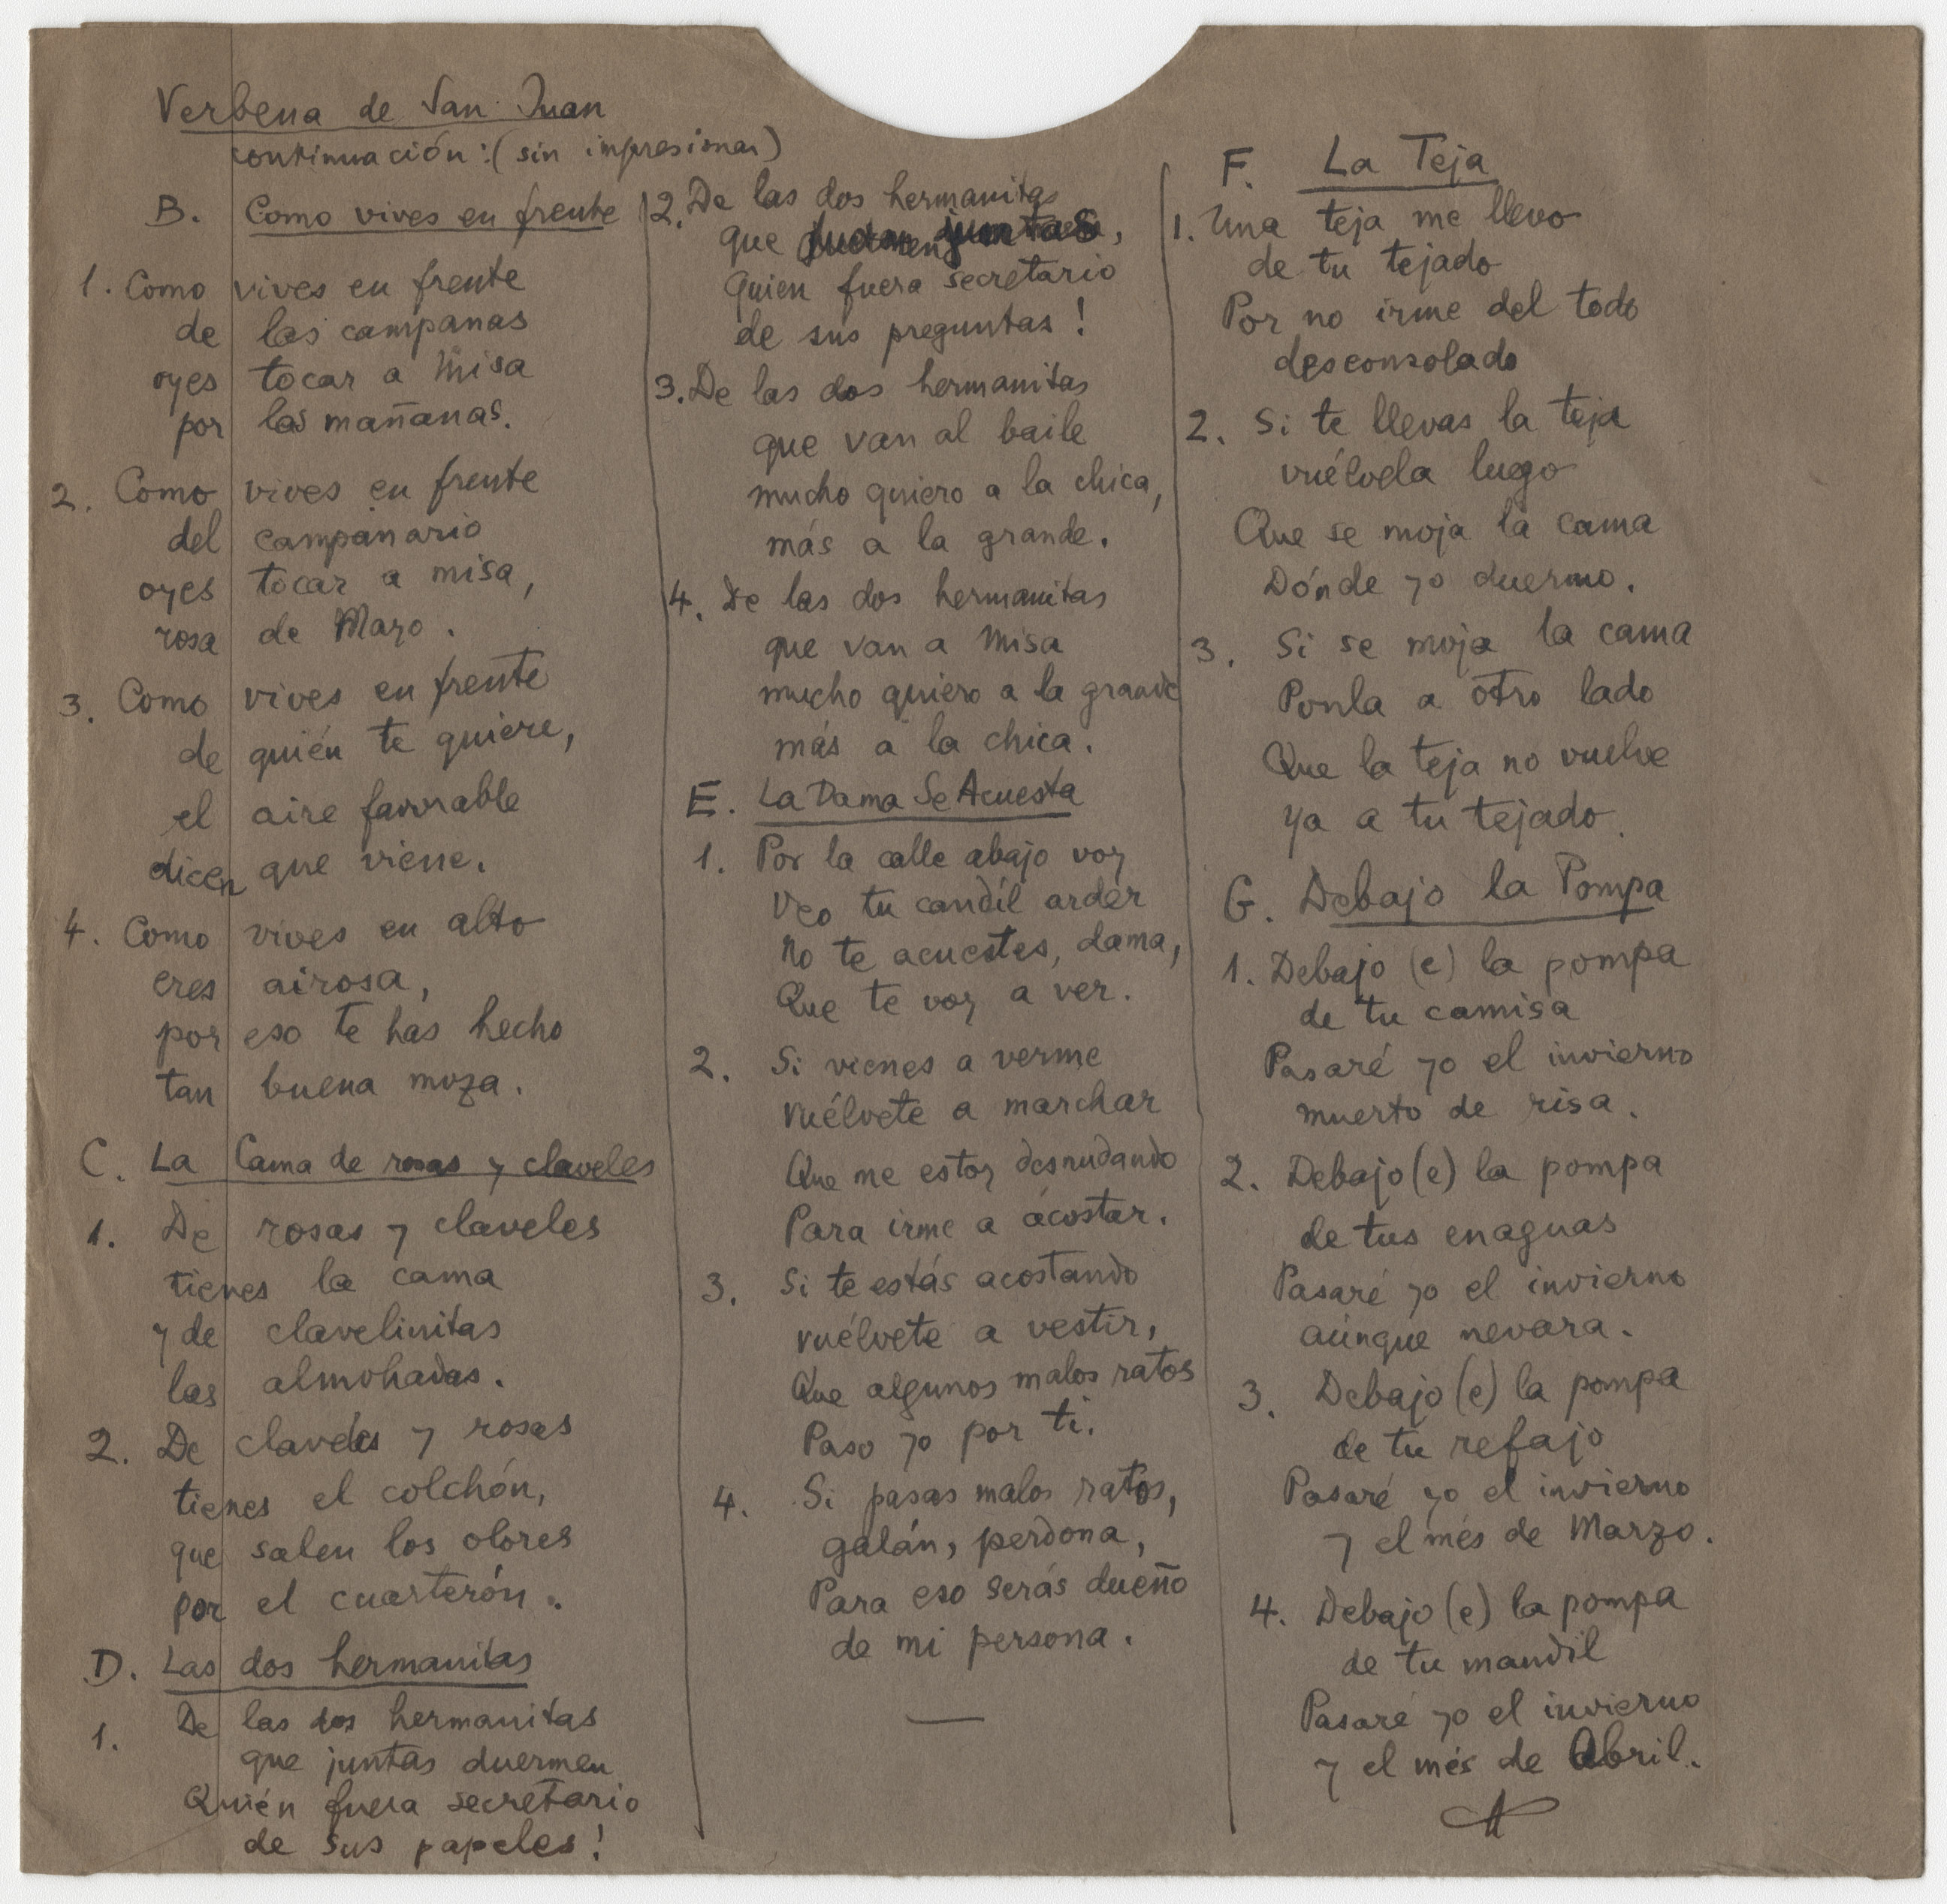 Verbena de San Juan
continuación: (sin impresionar)
B. Como vives en frente
1. Como vives en frente
de las campanas
oyes tocar a misa
por las mañanas.
2. Como vives en frente
del campanario
oyes tocar a misa,
rosa de Mayo.
3. Como vives en frente
de quién te quiere,
el aire favorable
dicen que viene.
4. Como vives en alto
eres airosa,
por eso te has hecho
tan buena moza.
C. La Cama de rosas y claveles
1. De rosas y claveles
tienes la cama
y de clavelinitas
las almohadas.
2. De claveles y rosas
tienes el colchón,
que salen los olores
por el cuarterón.
D. Las dos hermanitas
1. De las dos hermanitas
que juntas duermen
Quién fuera secretario
de sus papeles!
2. De las dos hermanitas
que juntas,
Quien fuera secretario
de sus preguntas!
3. De las dos hermanitas
que van al baile
mucho quiero a la chica,
más a la grande.
4. De las dos hermanitas
que van a misa
mucho quiero a la grande
más a la chica.
E. La Dama Se Acuesta
1. Por la calle abajo voy
Veo tu candíl arder
No te acuestes, dama,
Que te voy a ver.
2. Si vienes a verme
vuélvete a marchar
Que me estoy desnudando
Para irme a acostar.
3. Si te estás acostando
vuélvete a vestir,
Que algunos malos ratos
Paso yo por ti.
4. Si pasas malos ratos,
galán, perdona,
Para eso serás dueño
de mi persona.
F. La Teja
1. Una teja me llevo
de tu tejado
Por no irme del todo
desconsolado
2. Si te llevas la teja
vuélvela luego
Que se moja la cama
Dónde yo duermo.
3. Si se moja la cama
Ponla a otro lado
Que la teja no vuelve
ya a tu tejado.
G. Debajo la Pompa
1. Debajo (e) la pompa
de tu camisa
Pasaré yo el invierno
muerto de risa.
2. Debajo (e) la pompa
de tus enaguas
Pasaré yo el invierno
aúnque nevara.
3. Debajo (e) la pompa
de tu refajo
Pasaré yo el invierno
y el més de Marzo.
4. Debajo (e) la pompa
de tu mandil
Pasaré yo el invierno
y el més de Abril.